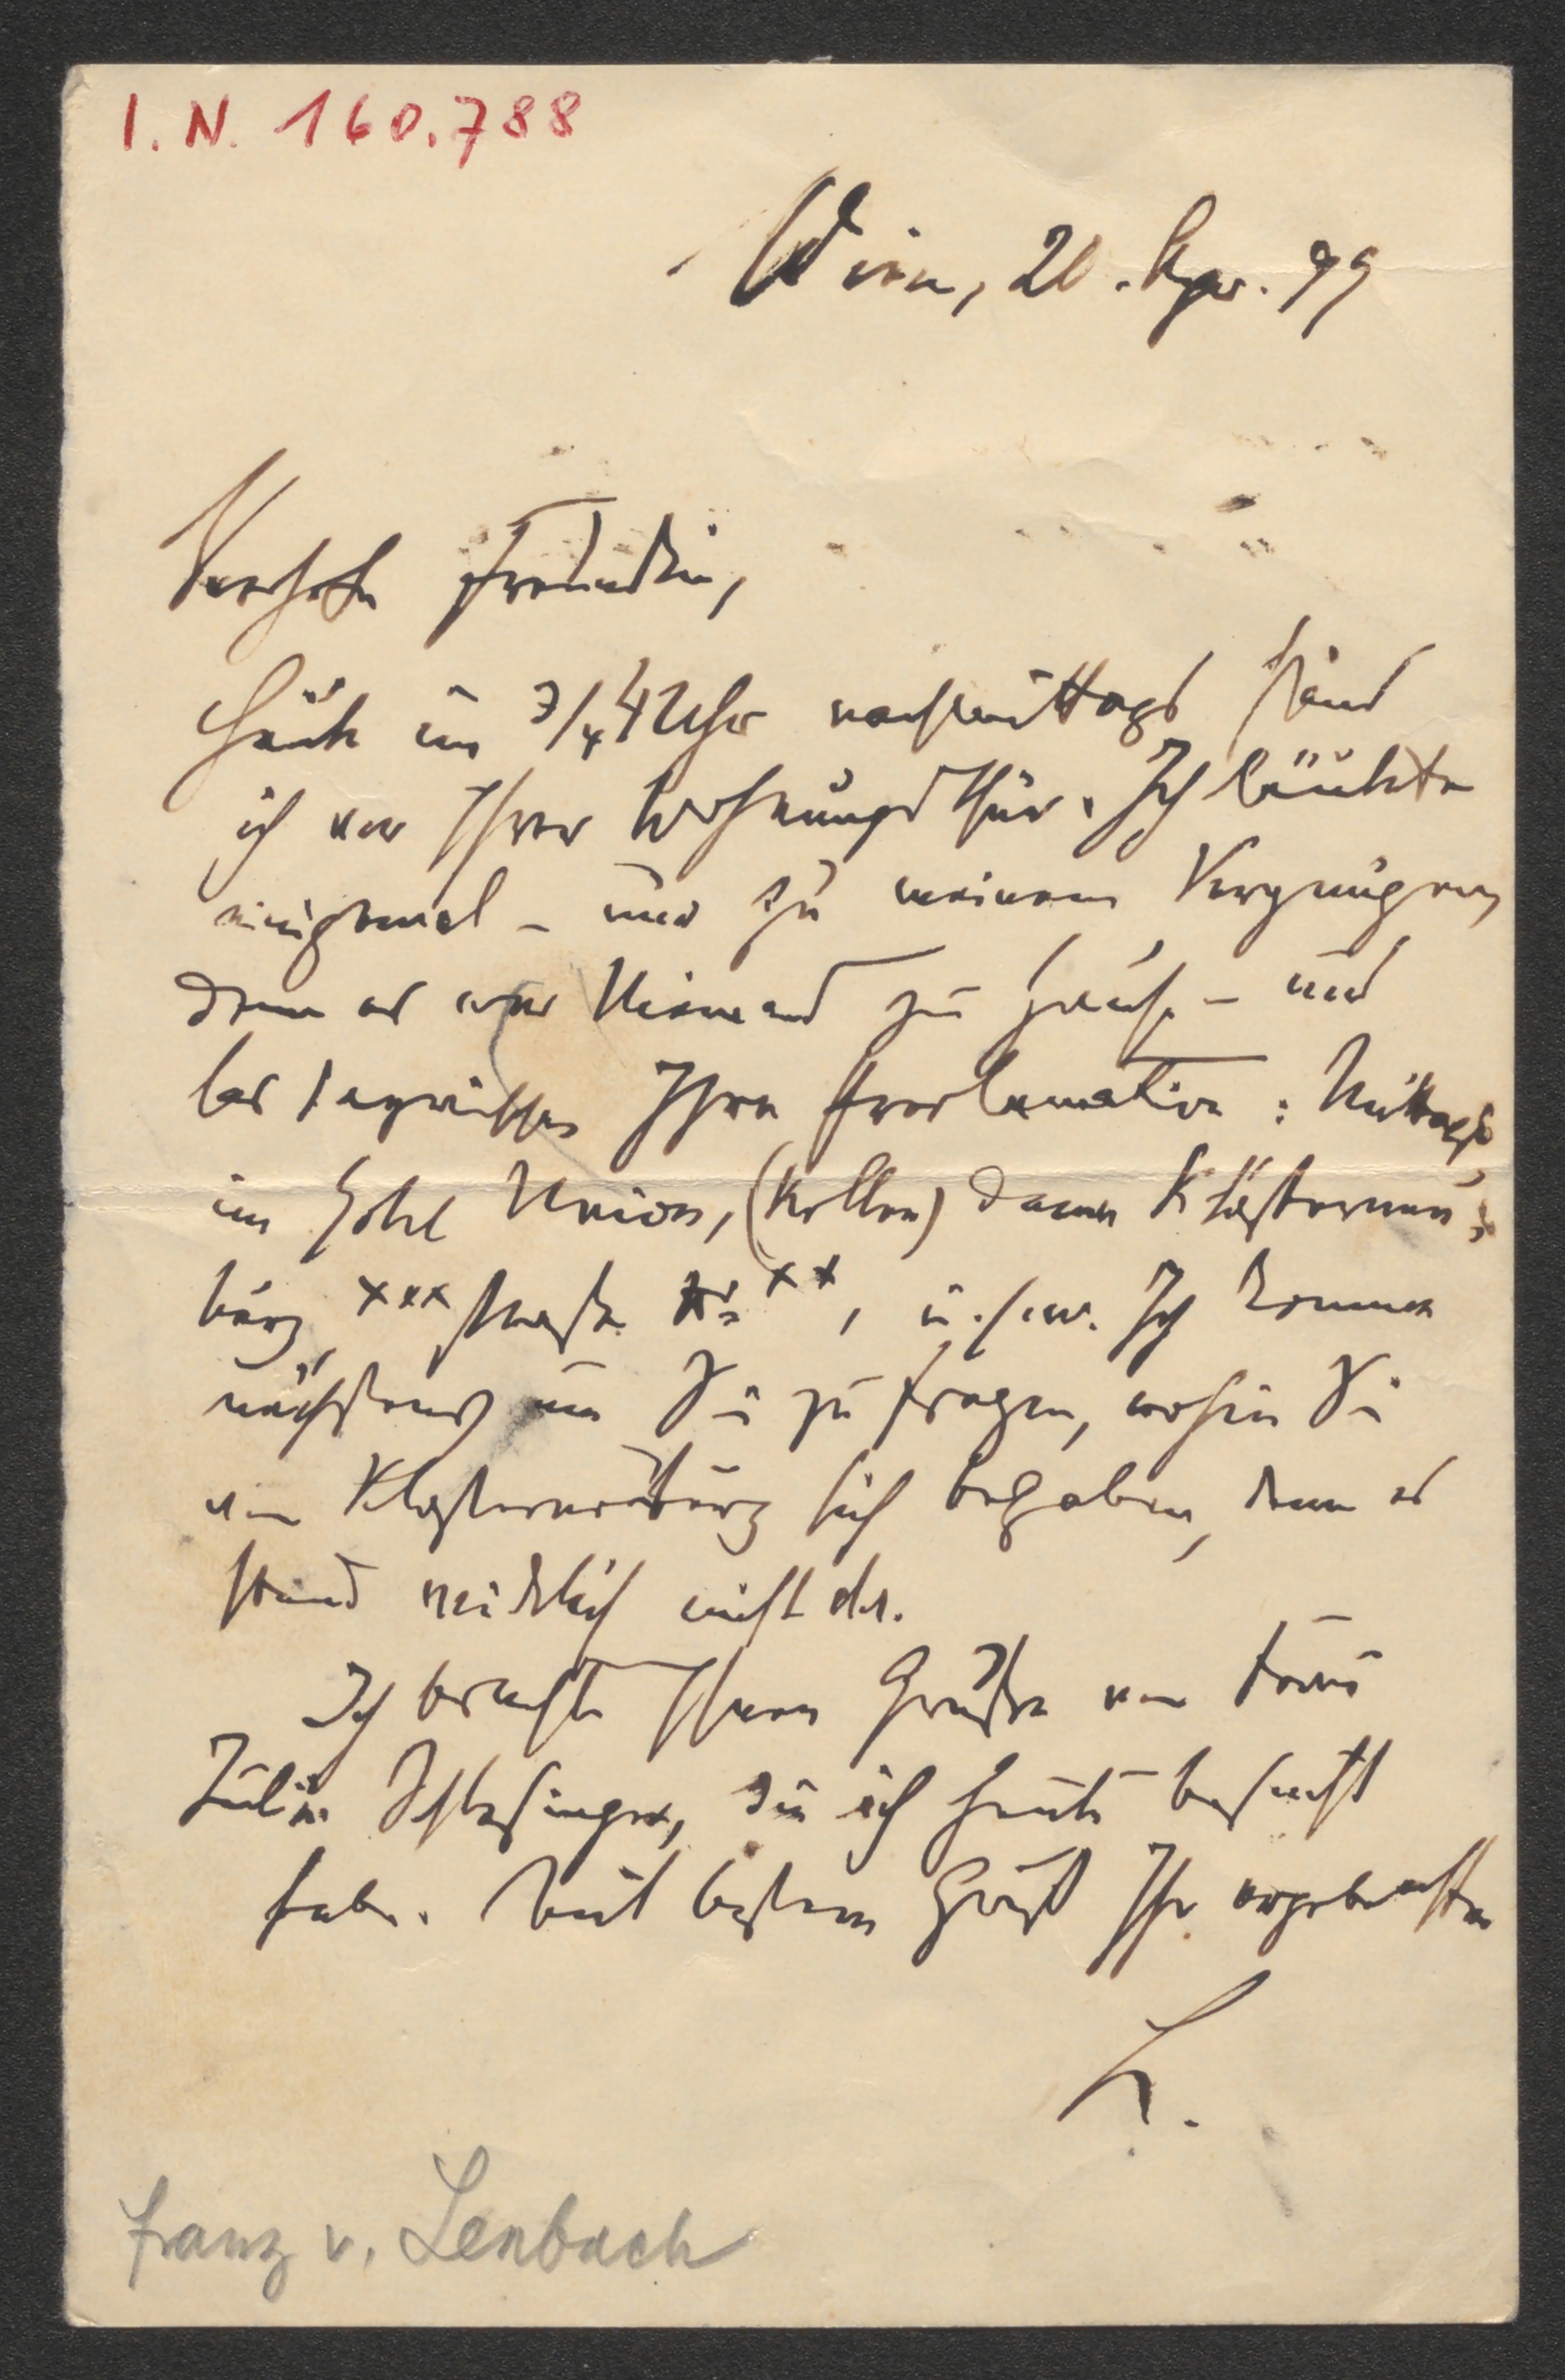 I. N. 160.788
Wien, 20. Apr. 99
Verehrte Freundin,
Heute um 3/4 4 Uhr nachmittags stand
ich vor Ihrer Wohnungsthür. Ich läutete
einigemal – und zu meinem Vergnügen,
denn es war Niemand zu Hause – und
las Ihre Proclamation: Mittags
im Hotel Union, (Keller) dann Klosterneu-
burg, xxx straße Nr. xx, u.s.w. Ich komme
nächstens um Sie zu fragen, wohin Sie
von Klosterneuburg sich begaben, denn es
stand nicht da.
Ich brachte Ihnen Grüße von Frau
Julie Schlesinger, die ich heute besucht
habe. Mit bestem Gruß Ihr ergebenster
L.
Franz v. Lenbach